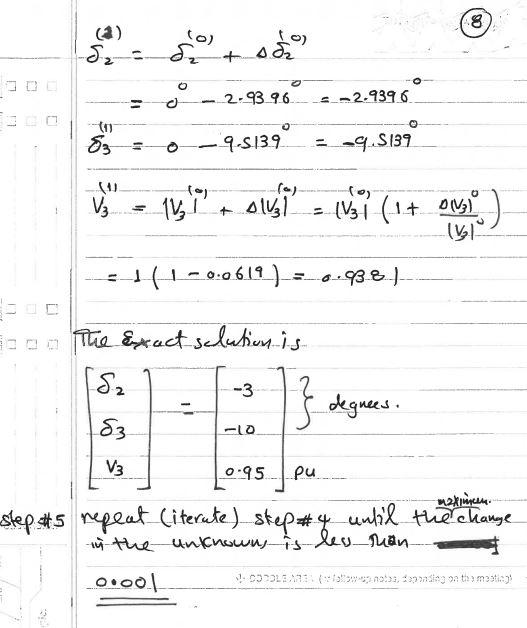 8
δ₂⁽¹⁾ = δ₂⁽⁰⁾ + Δδ₂⁽⁰⁾
= 0° - 2.9396° = -2.9396°
δ₃⁽¹⁾ = 0 - 9.5139° = -9.5139°
V₃⁽¹⁾ = |V₃|⁽⁰⁾ + Δ|V₃|⁽⁰⁾ = |V₃|⁽⁰⁾ (1 + Δ|V₃|⁰ / |V₃|⁰)
= 1 (1 - 0.0619) = 0.9381
The Exact solution is
[δ₂ δ₃ V₃] = [-3 -10 0.95] } degrees. pu
step #5 repeat (iterate) step #4 until the maximum change
in the unknowns is less than
0.001
DOODLE AREA (follow-up notes, depending on the meeting)